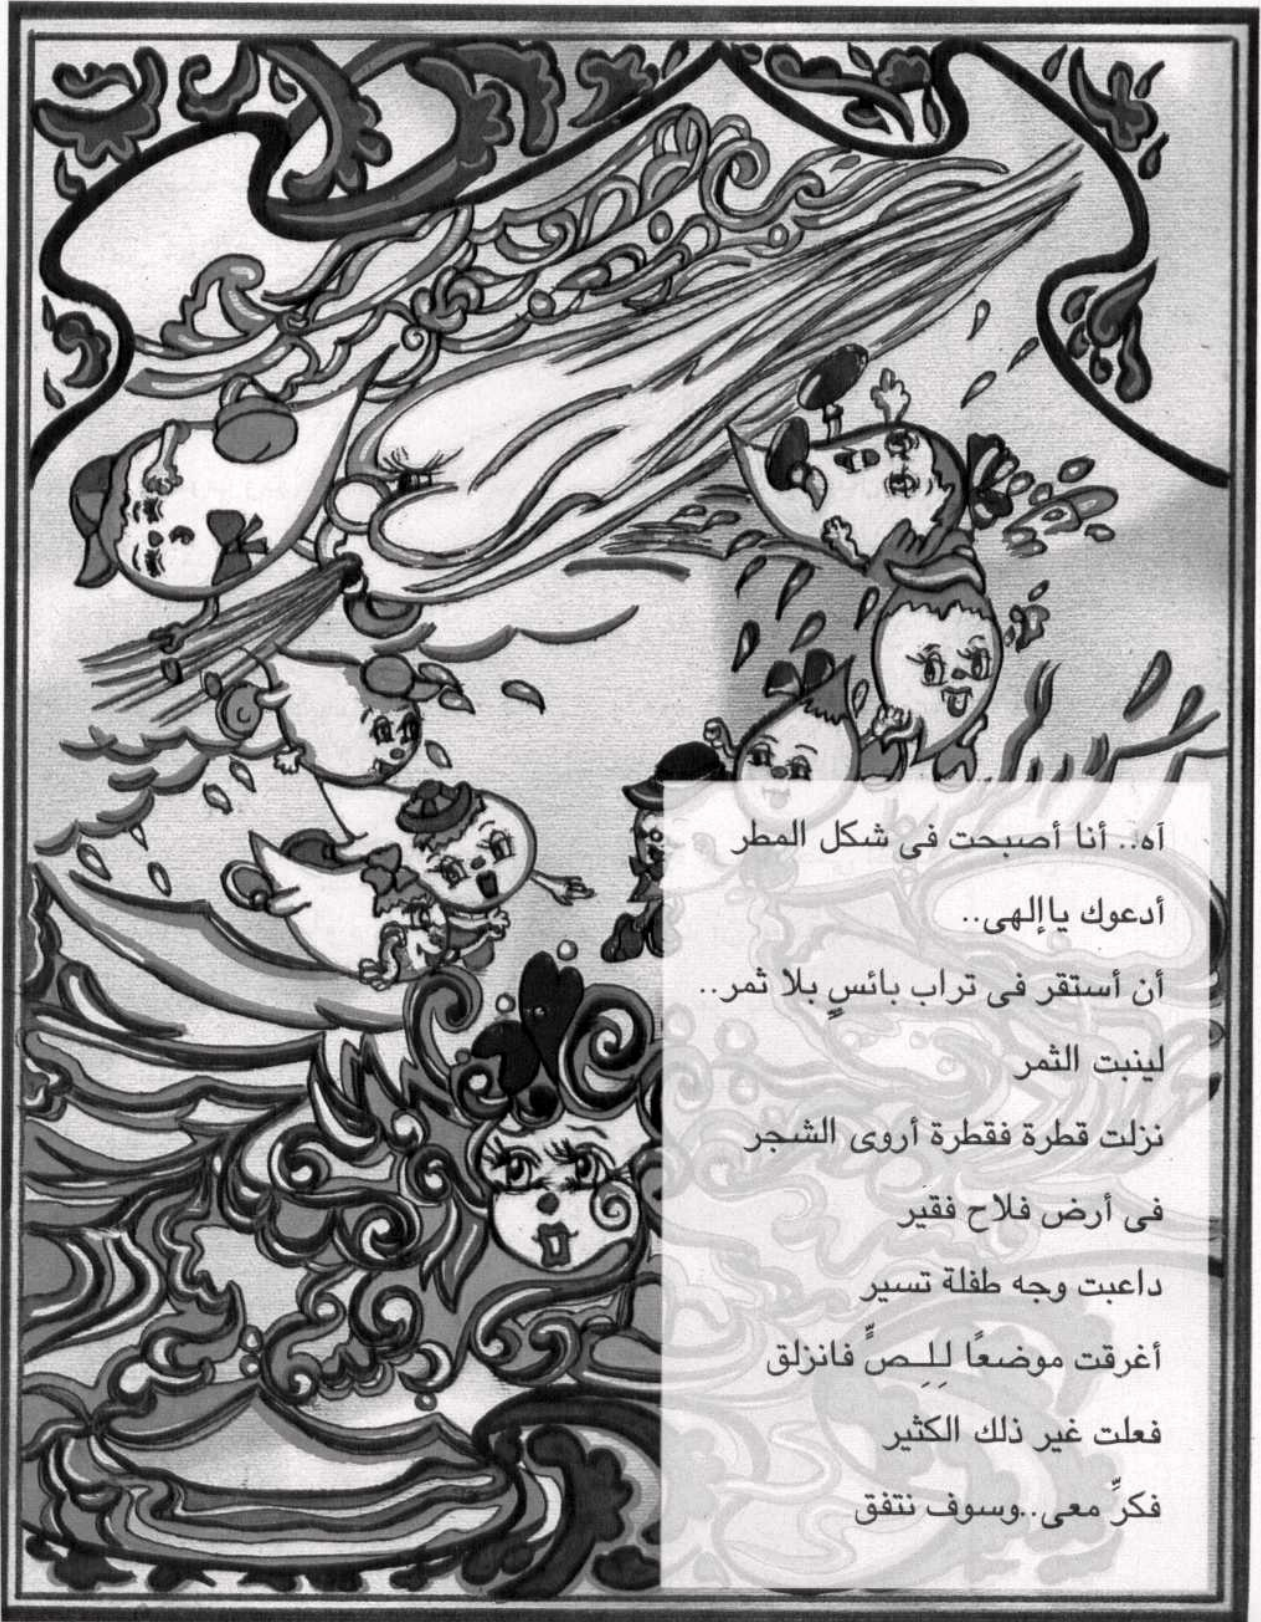 آه.. أنا أصبحت فى شكل المطر
أدعوك ياإلهى..
أن أستقر فى تراب بائسٍ بلا ثمر..
لينبت الثمر
نزلت قطرة فقطرة أروى الشجر
فى أرض فلاح فقير
داعبت وجه طفلة تسير
أغرقت موضعًا لِلِـصٍّ فانزلق
فعلت غير ذلك الكثير
فكرِّ معى..وسوف نتفق